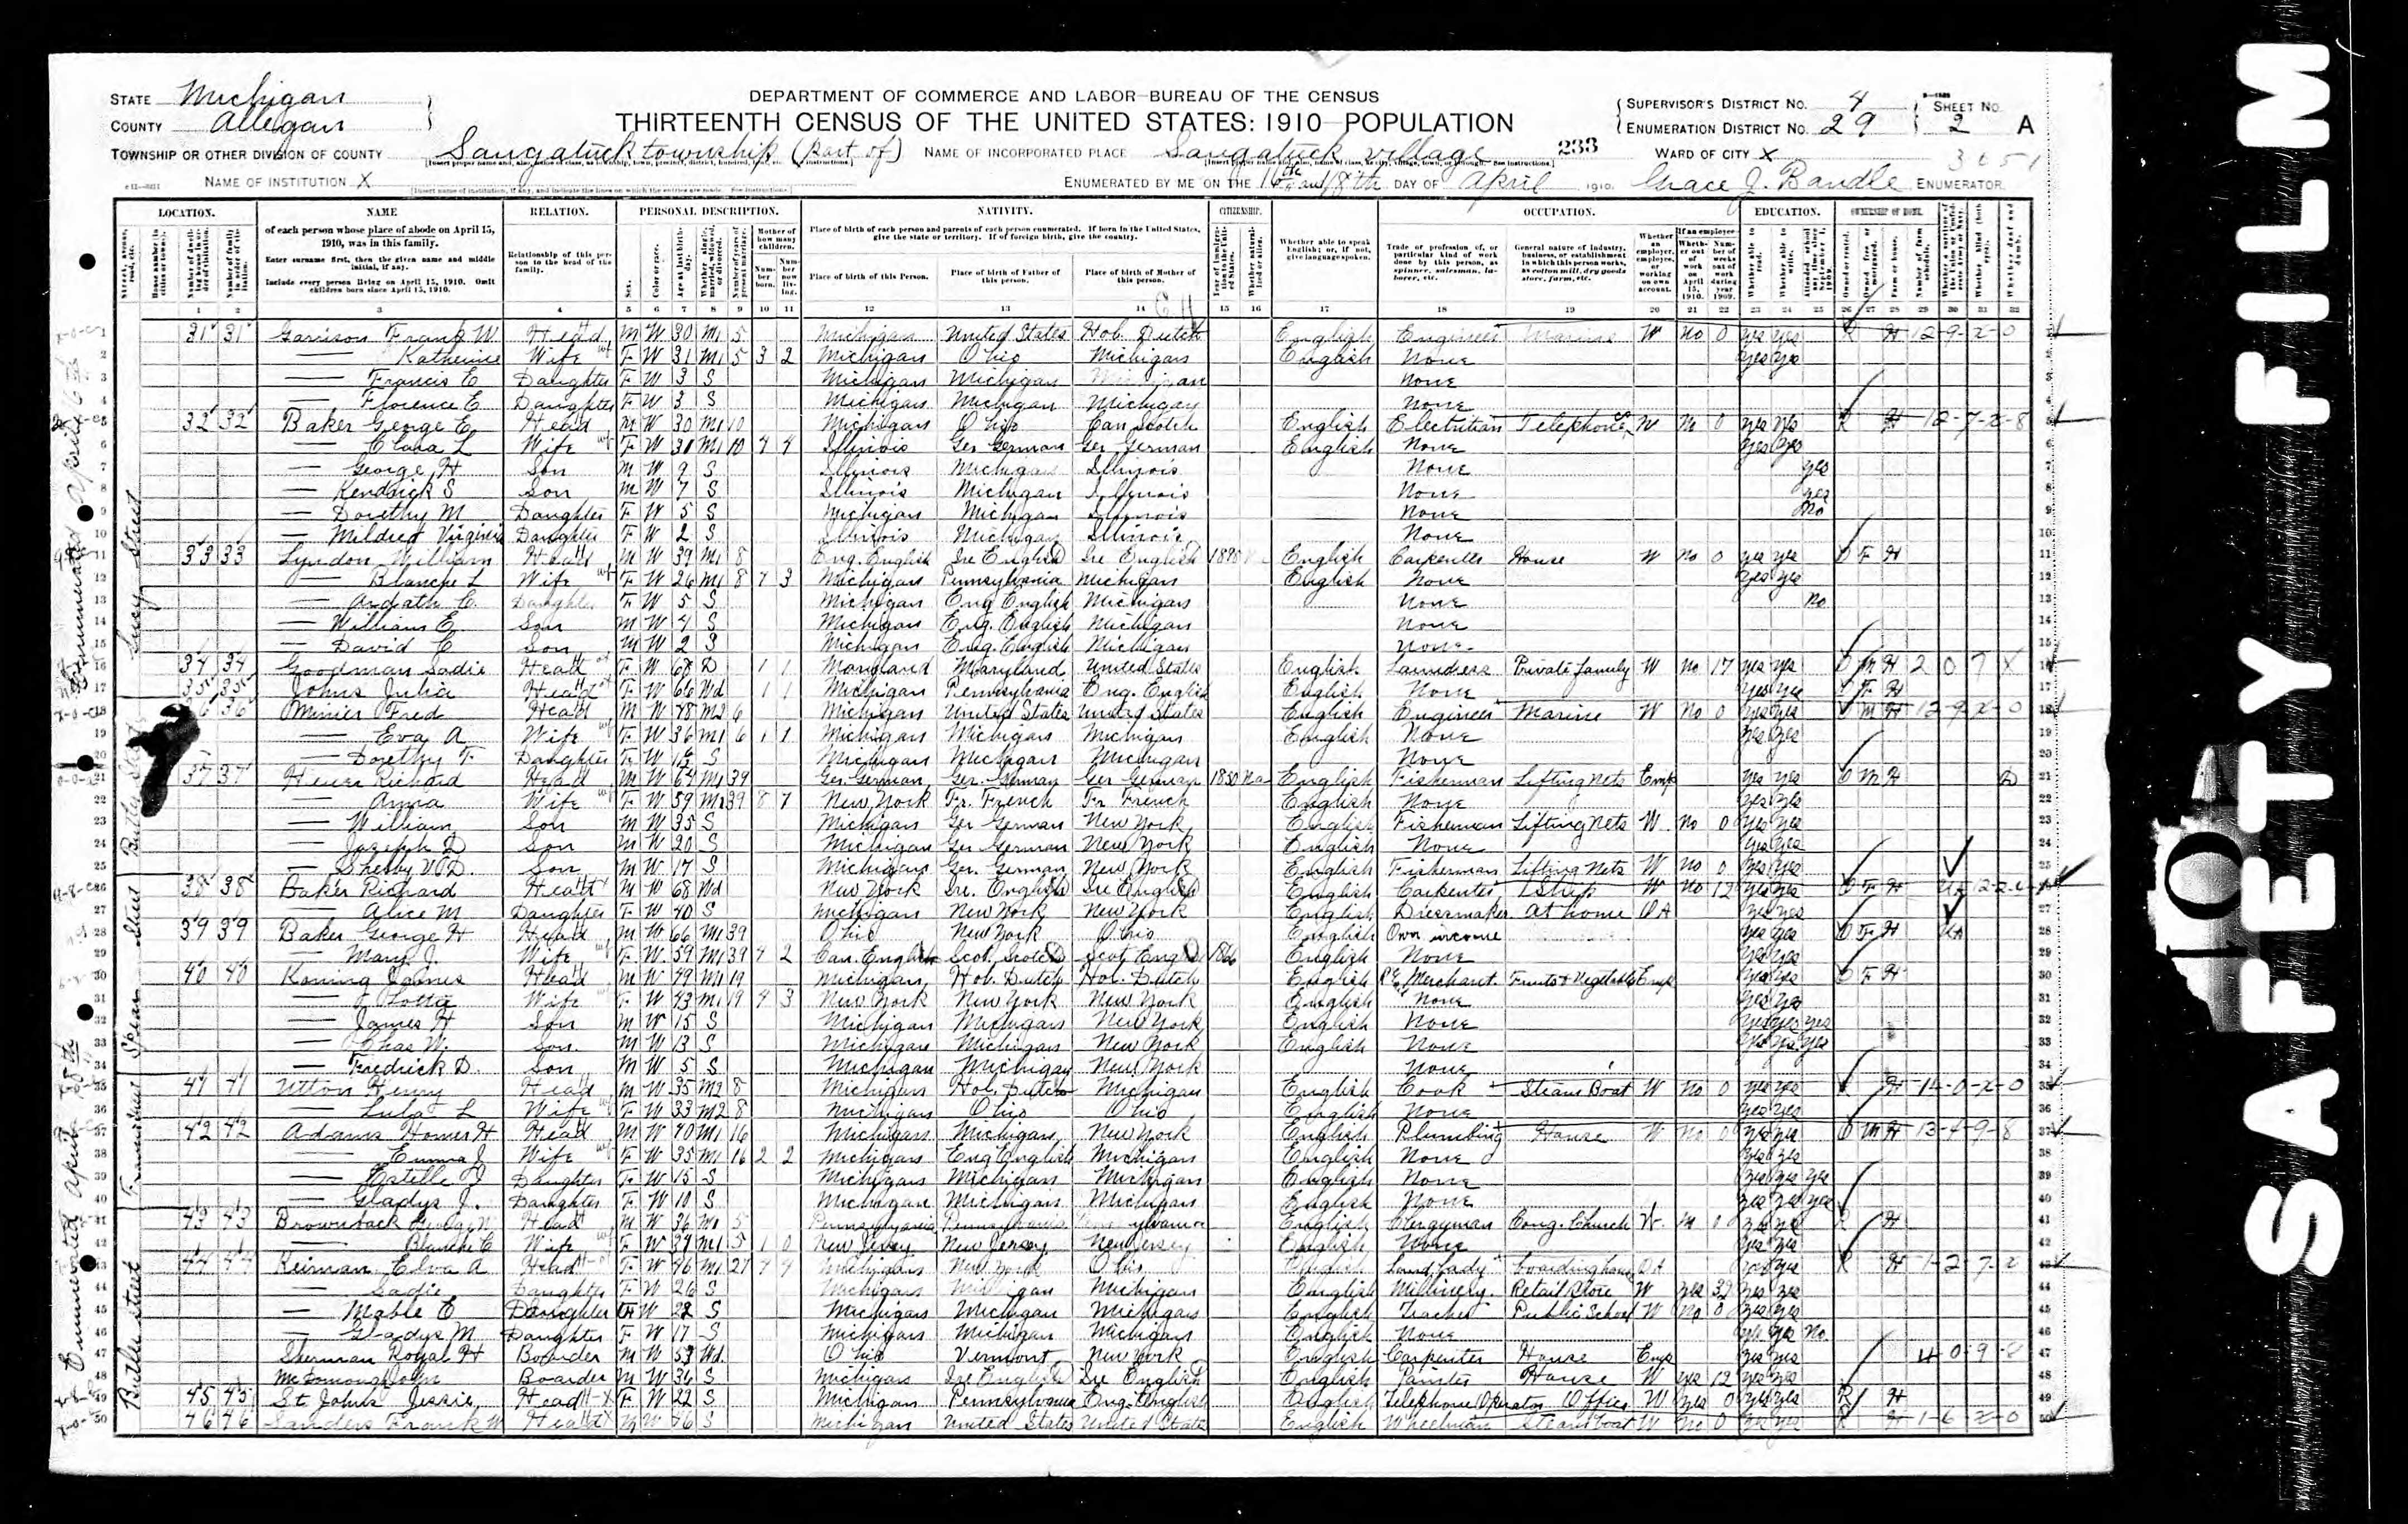 DEPARTMENT OF COMMERCE AND LABOR—BUREAU OF THE CENSUS
THIRTEENTH CENSUS OF THE UNITED STATES: 1910—POPULATION
STATE Michigan
COUNTY Allegan
TOWNSHIP OR OTHER DIVISION OF COUNTY Saugatuck township (part of)
NAME OF INSTITUTION X
NAME OF INCORPORATED PLACE Saugatuck village
233
ENUMERATED BY ME ON THE 16th and 18th DAY OF April 1910. Grace J. Bandle, ENUMERATOR.
SUPERVISOR'S DISTRICT NO. 4
ENUMERATION DISTRICT NO. 29
SHEET NO. 2 A
WARD OF CITY X
3051
LOCATION. NAME RELATION. PERSONAL DESCRIPTION. NATIVITY. CITIZENSHIP. OCCUPATION. EDUCATION. OWNERSHIP OF HOME.
of each person whose place of abode on April 15, 1910, was in this family.
Enter surname first, then the given name and middle initial, if any.
Include every person living on April 15, 1910. Omit children born since April 15, 1910.
Relationship of this person to the head of the family.
Place of birth of each person and parents of each person enumerated. If born in the United States, give the state or territory. If of foreign birth, give the country.
Place of birth of this Person. Place of birth of Father of this person. Place of birth of Mother of this person.
Whether able to speak English; or, if not, give language spoken.
Trade or profession of, or particular kind of work done by this person, as spinner, salesman, laborer, etc.
General nature of industry, business, or establishment in which this person works, as cotton mill, dry goods store, farm, etc.
1 31 31 Garrison Frank W Head M W 30 M1 5 Michigan United States Hol. Dutch English Engineer Marine W No 0 yes yes R H 12-9-x-0
2 — Katherine Wife F W 31 M1 5 3 2 Michigan Ohio Michigan English None yes yes
3 — Francis E Daughter F W 3 S Michigan Michigan Michigan None
4 — Florence E Daughter F W 3 S Michigan Michigan Michigan None
5 32 32 Baker George E Head M W 30 M1 10 Michigan Ohio Can Scotch English Electrician Telephone W No 0 yes yes R H 12-7-x-8
6 — Clara L Wife F W 30 M1 10 4 4 Illinois Ger German Ger German English None yes yes
7 — George H Son M W 9 S Illinois Michigan Illinois None yes
8 — Kendrick S Son M W 7 S Illinois Michigan Illinois None yes
9 — Dorothy M Daughter F W 5 S Michigan Michigan Illinois None No
10 — Mildred Virginia Daughter F W 2 S Illinois Michigan Illinois None
11 33 33 Lyndon William Head M W 39 M1 8 Eng. English Ire English Ire English English Carpenter House W No 0 yes yes O F H
12 — Blanche L Wife F W 26 M1 8 4 3 Michigan Pennsylvania Michigan English None yes yes
13 — Ardath C. Daughter F W 5 S Michigan Eng English Michigan None No
14 — William E Son M W 4 S Michigan Eng. English Michigan None
15 — David C Son M W 2 S Michigan Eng. English Michigan None
16 34 34 Goodman Sadie Head F W D 1 1 Maryland Maryland United States English Laundress Private family W No 17 yes yes O M H 2 0 7 X
17 35 35 Johns Julia Head F W 66 Wd 1 1 Michigan Pennsylvania Eng. English English None yes yes O F H
18 36 Minier Fred Head M W 48 M2 6 Michigan United States United States English Engineer Marine W No 0 yes yes O M H 12-9-x-0
19 — Eva A Wife F W 36 M1 6 1 1 Michigan Michigan Michigan English None yes yes
20 — Dorothy F. Daughter F W S Michigan Michigan Michigan None
21 37 37 Richard Head M W 64 M1 39 Ger German Ger. German Ger German 1850 Na English Fisherman Lifting Nets Emp yes yes O M H
22 — Anna Wife F W 59 M1 39 8 7 New York Fr. French Fr French English None yes yes
23 — William Son M W 35 S Michigan Ger German New York English Fisherman Lifting Nets W No 0 yes yes
24 — Joseph D Son M W 20 S Michigan Ger German New York English None yes yes
25 — Shelby V.D. Son M W 17 S Michigan Ger. German New York English Fisherman Lifting Nets W No 0 yes yes
26 38 38 Baker Richard Head M W 68 Wd New York Ire. English Ire English English Carpenter Ship W No 12 yes yes O F H UA
27 — Alice M Daughter F W 40 S Michigan New York New York English Dressmaker At home OA yes yes
28 39 39 Baker George H Head M W 66 M1 39 Ohio New York Ohio English Own income yes yes O F H UA
29 — Mary J. Wife F W 59 M1 39 4 2 Can. English Scot. Scotch Scot Eng 1866 English None yes yes
30 40 40 Koning James Head M W 49 M1 19 Michigan Hol. Dutch Hol. Dutch English Merchant Fruits & Vegetables Emp yes yes O F H
31 — Lottie Wife F W 43 M1 19 4 3 New York New York New York English None yes yes
32 — James H Son M W 15 S Michigan Michigan New York English None yes yes yes
33 — Chas W. Son M W 13 S Michigan Michigan New York English None yes yes yes
34 — Fredrick D. Son M W 5 S Michigan Michigan New York None
35 41 41 Utton Henry Head M W 35 M2 8 Michigan Hol. Dutch Michigan English Cook Steam Boat W No 0 yes yes R H 14-0-x-0
36 — Lula L Wife F W 33 M2 8 Michigan Ohio Ohio English None yes yes
37 42 42 Adams Homer H Head M W 40 M1 16 Michigan Michigan New York English Plumbing House W No 0 yes yes O M H 13-4-9-8
38 — Emma J Wife F W 35 M1 16 2 2 Michigan Eng English Michigan English None yes yes
39 — Estelle I Daughter F W 15 S Michigan Michigan Michigan English None yes yes yes
40 — Gladys J. Daughter F W 10 S Michigan Michigan Michigan English None yes yes yes
41 43 43 Brownback Head M W 36 M1 5 Pennsylvania Pennsylvania Pennsylvania English Clergyman Cong. Church W No 0 yes yes R H
42 — Blanche C Wife F W 34 M1 5 1 0 New Jersey New Jersey New Jersey English None yes yes
43 44 44 Heirman Elva A Head F W 46 M1 27 4 4 Michigan New York Ohio English Land Lady boarding house OA yes yes R H 1-2-7-x
44 — Sadie Daughter F W 26 S Michigan Michigan Michigan English Millinery Retail Store W yes 32 yes yes
45 — Mable E Daughter F W 22 S Michigan Michigan Michigan English Teacher Public School W No 0 yes yes
46 — Gladys M Daughter F W 17 S Michigan Michigan Michigan English None yes yes No
47 Sherman Royal H Boarder M W 53 Wd. Ohio Vermont New York English Carpenter House Emp yes yes
48 McDonough John Boarder M W 36 S Michigan Ire English Ire English English Painter House W yes 12 yes yes
49 45 45 St Johns Jessie Head F W 22 S Michigan Pennsylvania Eng. English English Telephone Operator Office W yes 0 yes yes R H
50 46 46 Sanders Frank W Head M W 46 S Michigan United States United States English Wheelman Steam boat W No 0 yes yes R H 1-6-x-0
Butler Street
Spear Street
Francis Street
Lucy Street
SAFETY FILM